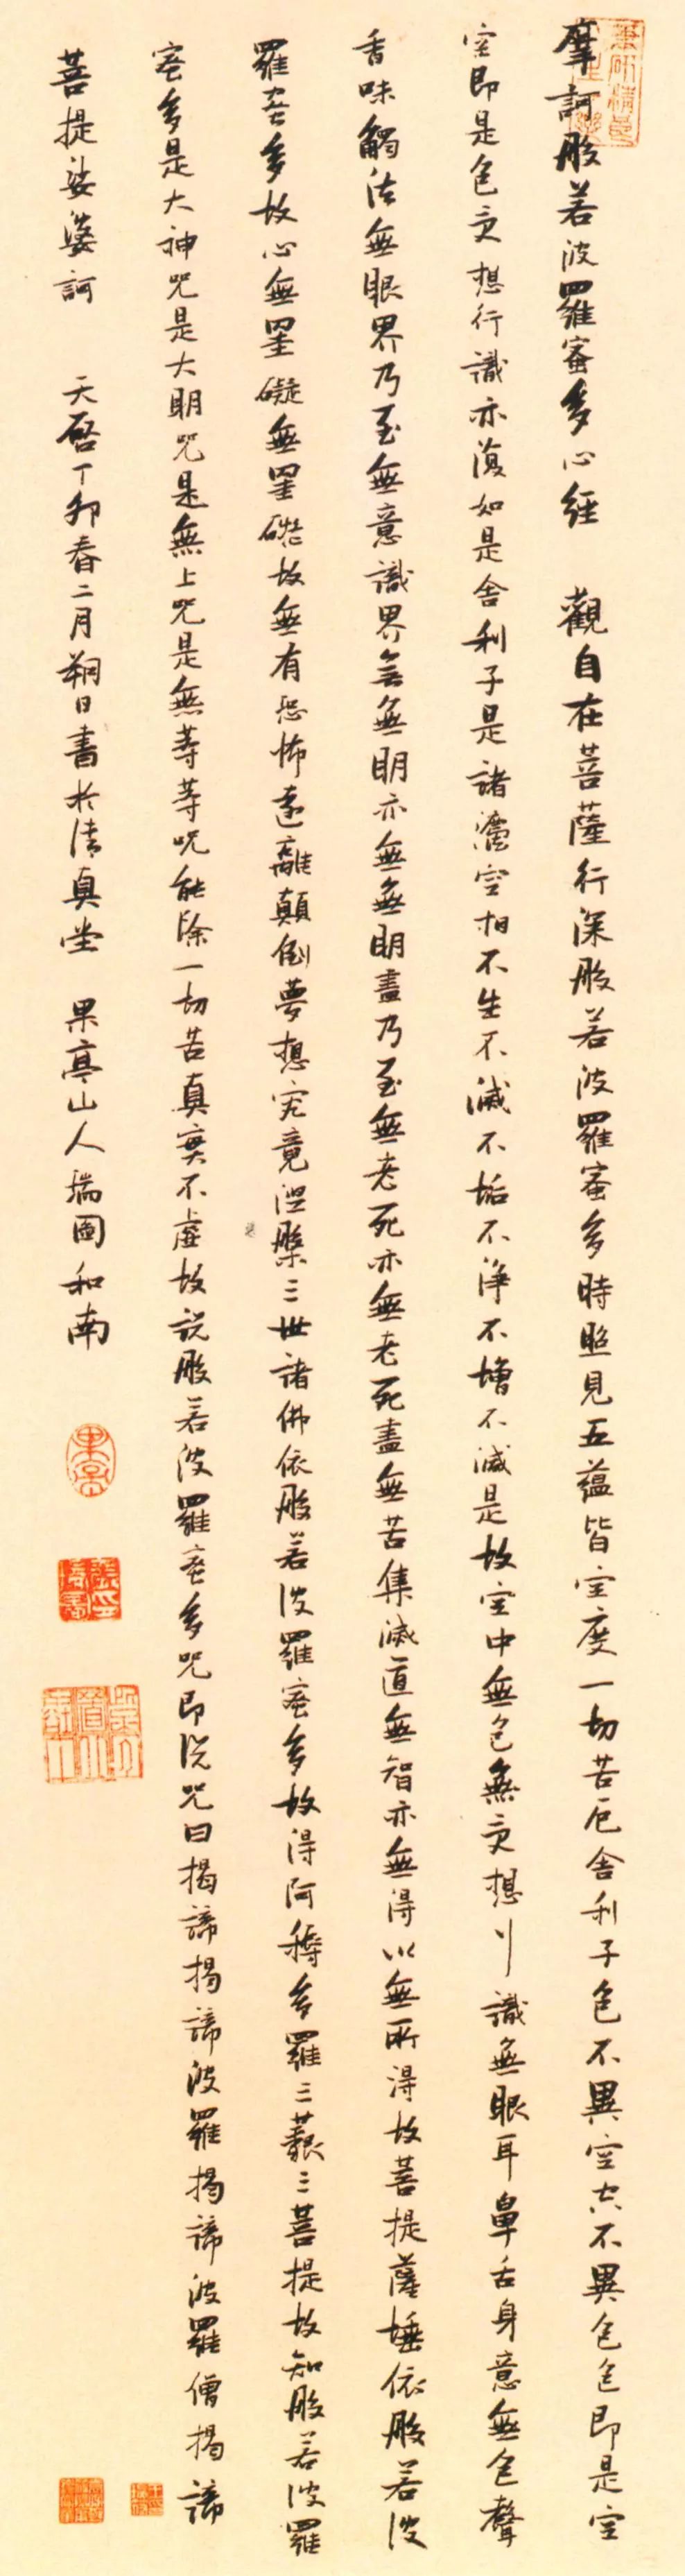 摩訶般若波羅蜜多心經 觀自在菩薩行深般若波羅蜜多時照見五蘊皆空度一切苦厄舍利子色不異空空不異色色即是空
空即是色受想行識亦復如是舍利子是諸法空相不生不滅不垢不淨不增不減是故空中無色無受想行識無眼耳鼻舌身意無色聲
香味觸法無眼界乃至無意識界無無明亦無無明盡乃至無老死亦無老死盡無苦集滅道無智亦無得以無所得故菩提薩埵依般若波
羅蜜多故心無罣礙無罣礙故無有恐怖遠離顛倒夢想究竟涅槃三世諸佛依般若波羅蜜多故得阿耨多羅三藐三菩提故知般若波羅
蜜多是大神咒是大明咒是無上咒是無等等咒能除一切苦真實不虛故說般若波羅蜜多咒即說咒曰揭諦揭諦波羅揭諦波羅僧揭諦
菩提娑婆訶 天啓丁卯春二月朔日書於清真堂 果亭山人瑞圖和南
果亭